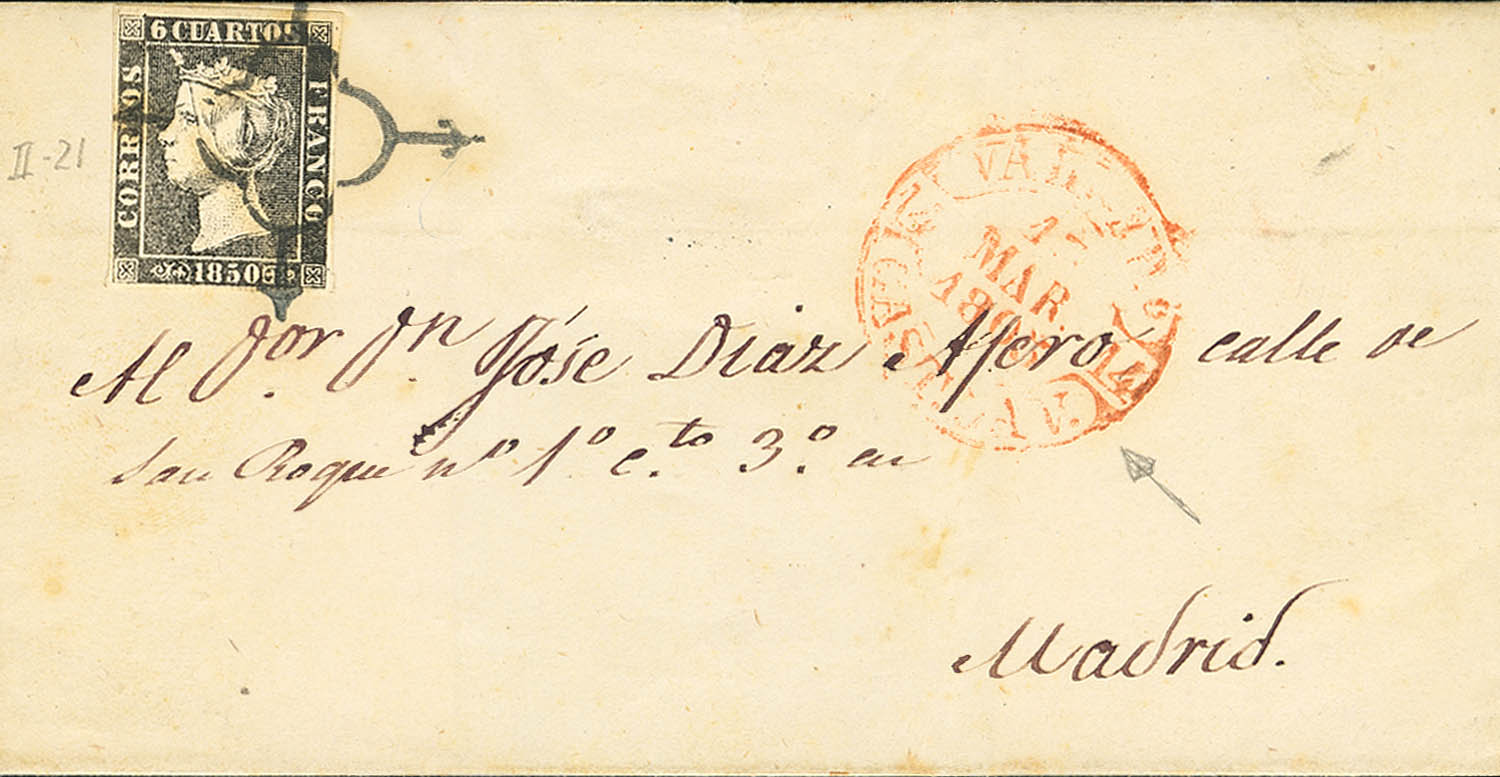 6 CUARTOS
CORREOS
FRANCO
1850
II-21
MAR
14
Al Sor Dn José Diaz Asero calle de
San Roque nº 1º c.to 3.º en
Madrid.